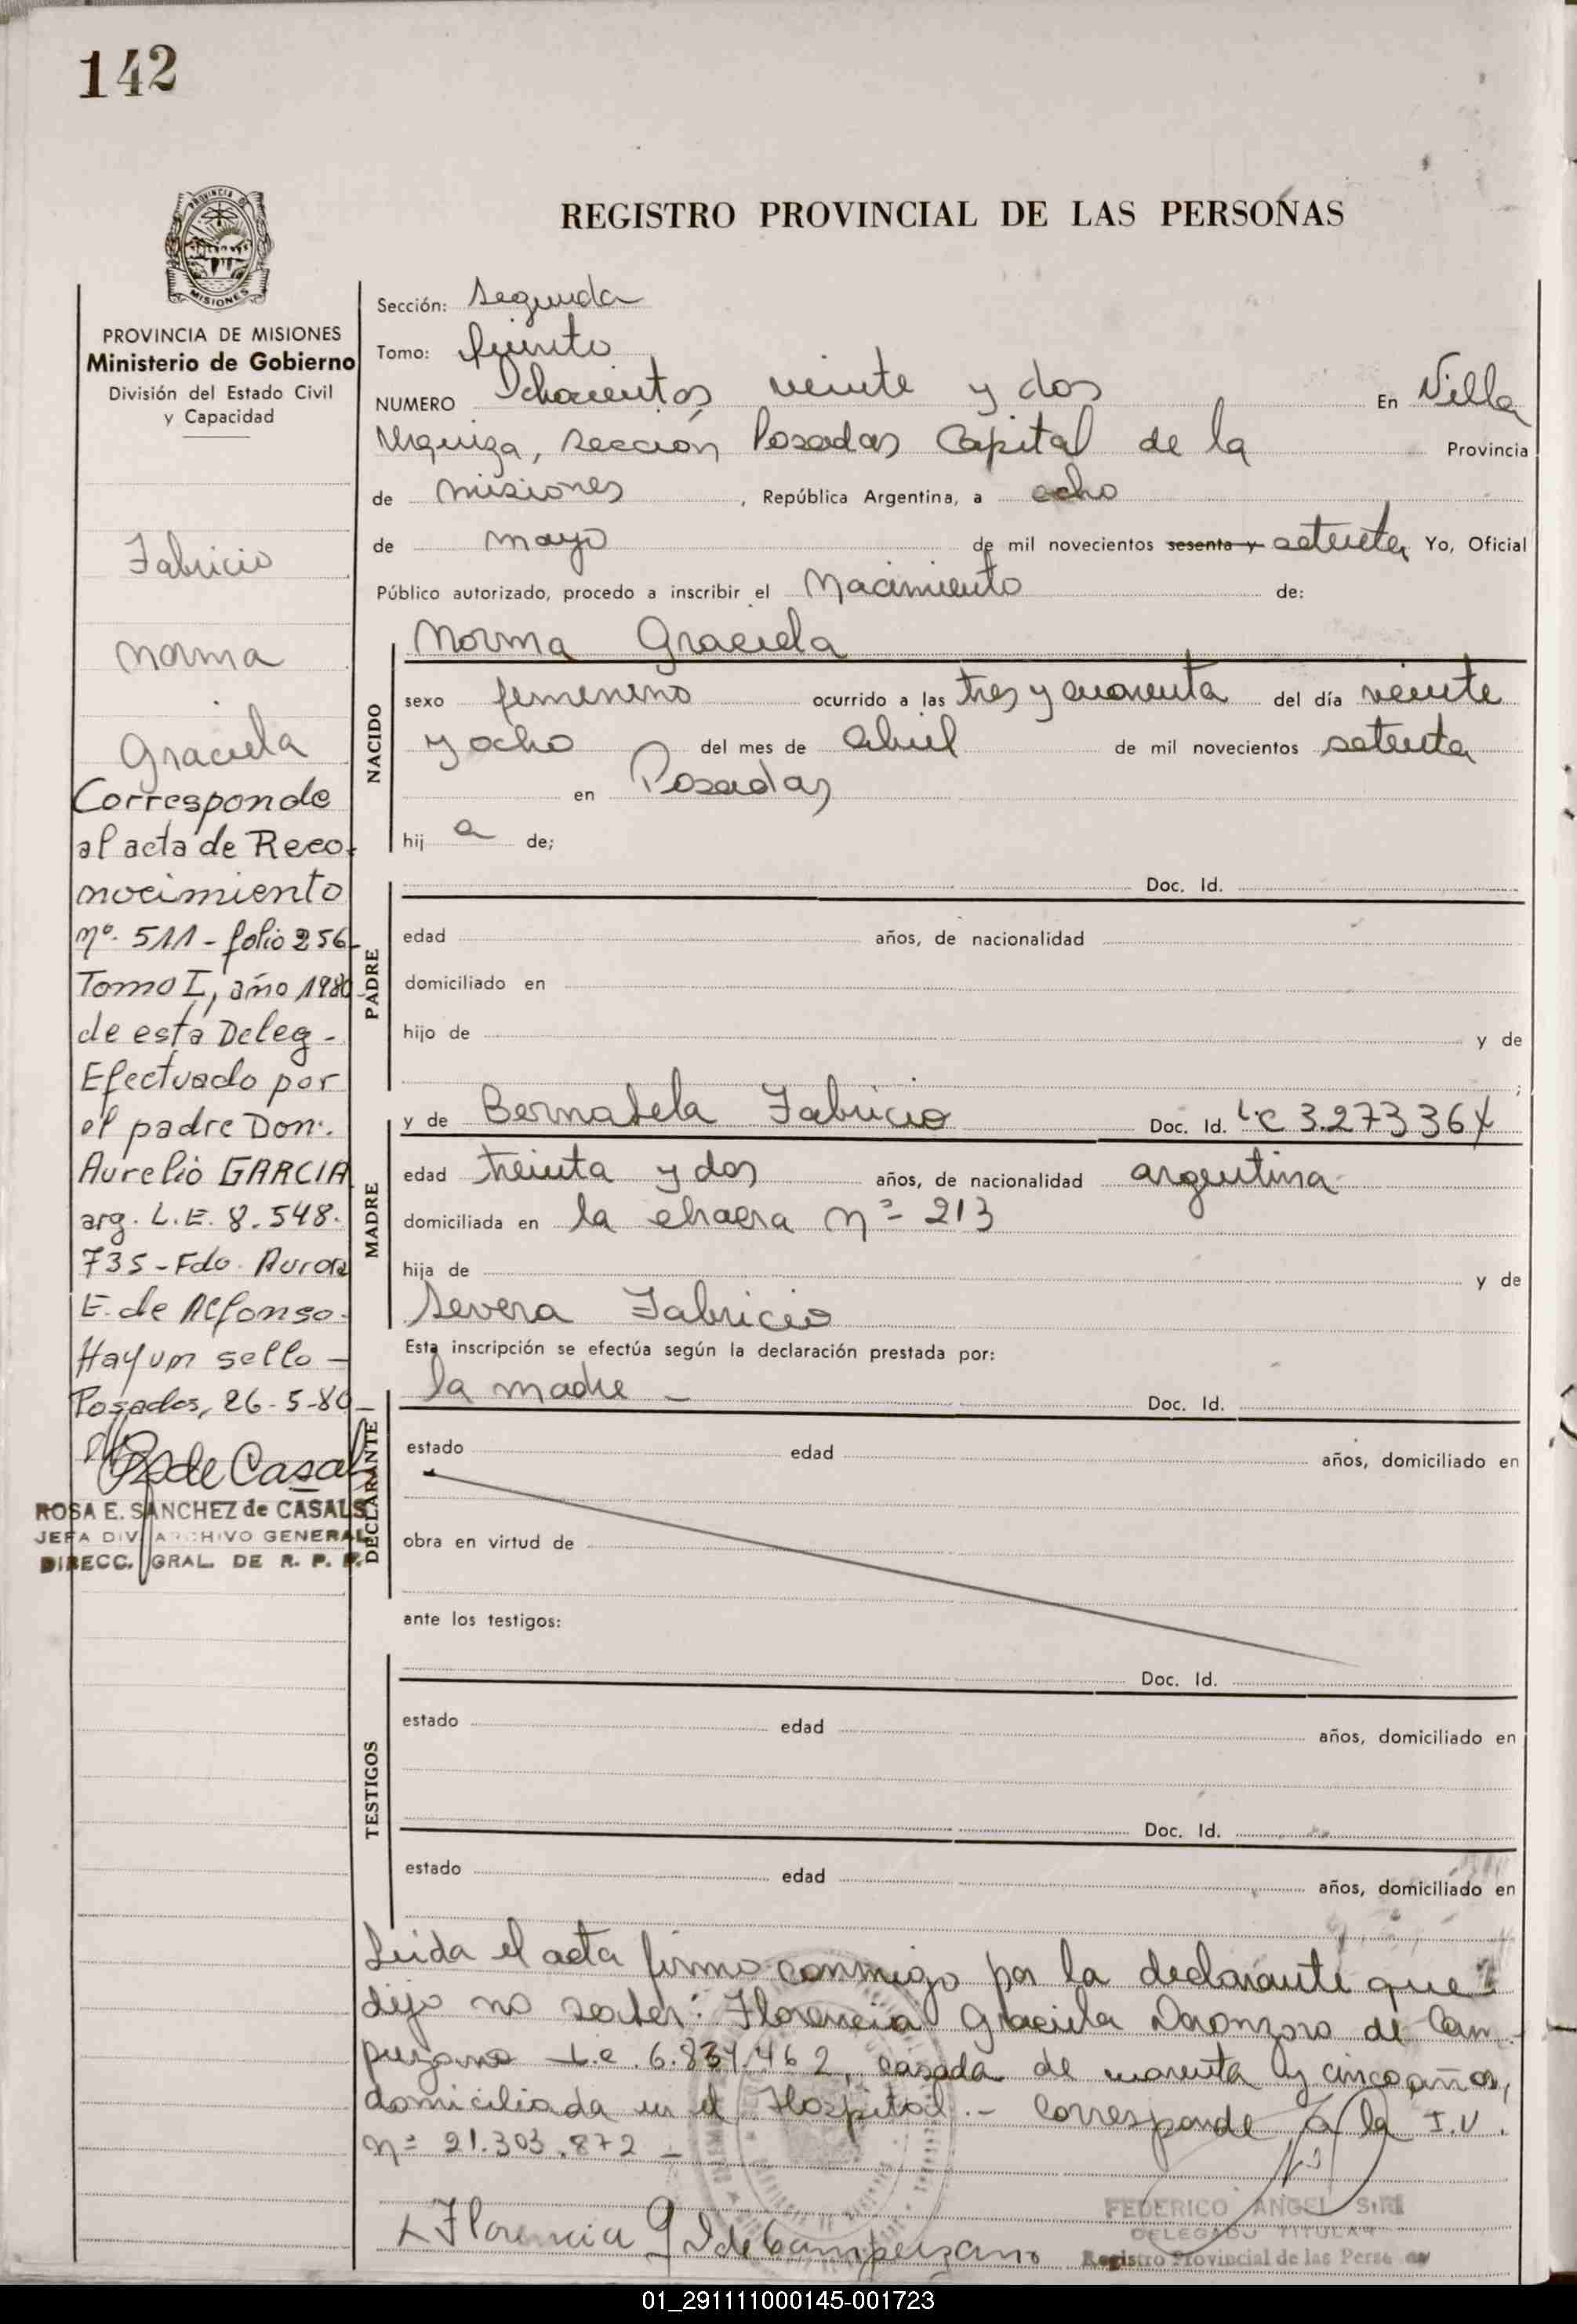 142
REGISTRO PROVINCIAL DE LAS PERSONAS
PROVINCIA DE MISIONES
Ministerio de Gobierno
División del Estado Civil
y Capacidad
Fabricio
Norma
Graciela
Corresponde
al acta de Reco-
nocimiento
nº. 511 - folio 256
Tomo I, año 1980
de esta Deleg-
Efectuado por
el padre Don:
Aurelio GARCIA
arg. L.E. 8.548.
735 - Fdo. Aurora
E. de Alfonso.
Hay un sello -
Posadas, 26-5-80
de Casals
ROSA E. SANCHEZ de CASALS
JEFA DIV. ARCHIVO GENERAL
DIRECC. GRAL. DE R. P. P.
Sección: Segunda
Tomo: Quinto
NUMERO Ochocientos veinte y dos En Villa
Urquiza, sección Posadas Capital de la Provincia
de Misiones, República Argentina, a ocho
de mayo de mil novecientos sesenta y setenta Yo, Oficial
Público autorizado, procedo a inscribir el Nacimiento de:
NACIDO
Norma Graciela
sexo femenino ocurrido a las tres y cuarenta del día veinte
y ocho del mes de abril de mil novecientos setenta
en Posadas
hij a de;
PADRE
Doc. Id.
edad años, de nacionalidad
domiciliado en
hijo de y de
;
MADRE
y de Bernabela Fabricio Doc. Id. L.C 3.273 364
edad treinta y dos años, de nacionalidad argentina
domiciliada en la chacra nº 213
hija de y de
Severa Fabricio
Esta inscripción se efectúa según la declaración prestada por:
DECLARANTE
la madre - Doc. Id.
estado edad años, domiciliado en
obra en virtud de
ante los testigos:
TESTIGOS
Doc. Id.
estado edad años, domiciliado en
Doc. Id.
estado edad años, domiciliado en
Leida el acta firmo conmigo por la declarante que
dijo no saber: Florencia Graciela de Cam-
puzano L.C. 6.837.462, casada de cuarenta y cinco años,
domiciliada en el Hospital.- Corresponde a la I.U.
nº 21.303.872 -
Florencia G D de Campuzano
FEDERICO ANGEL
DELEGADO TITULAR
Registro Provincial de las Personas
01_291111000145-001723